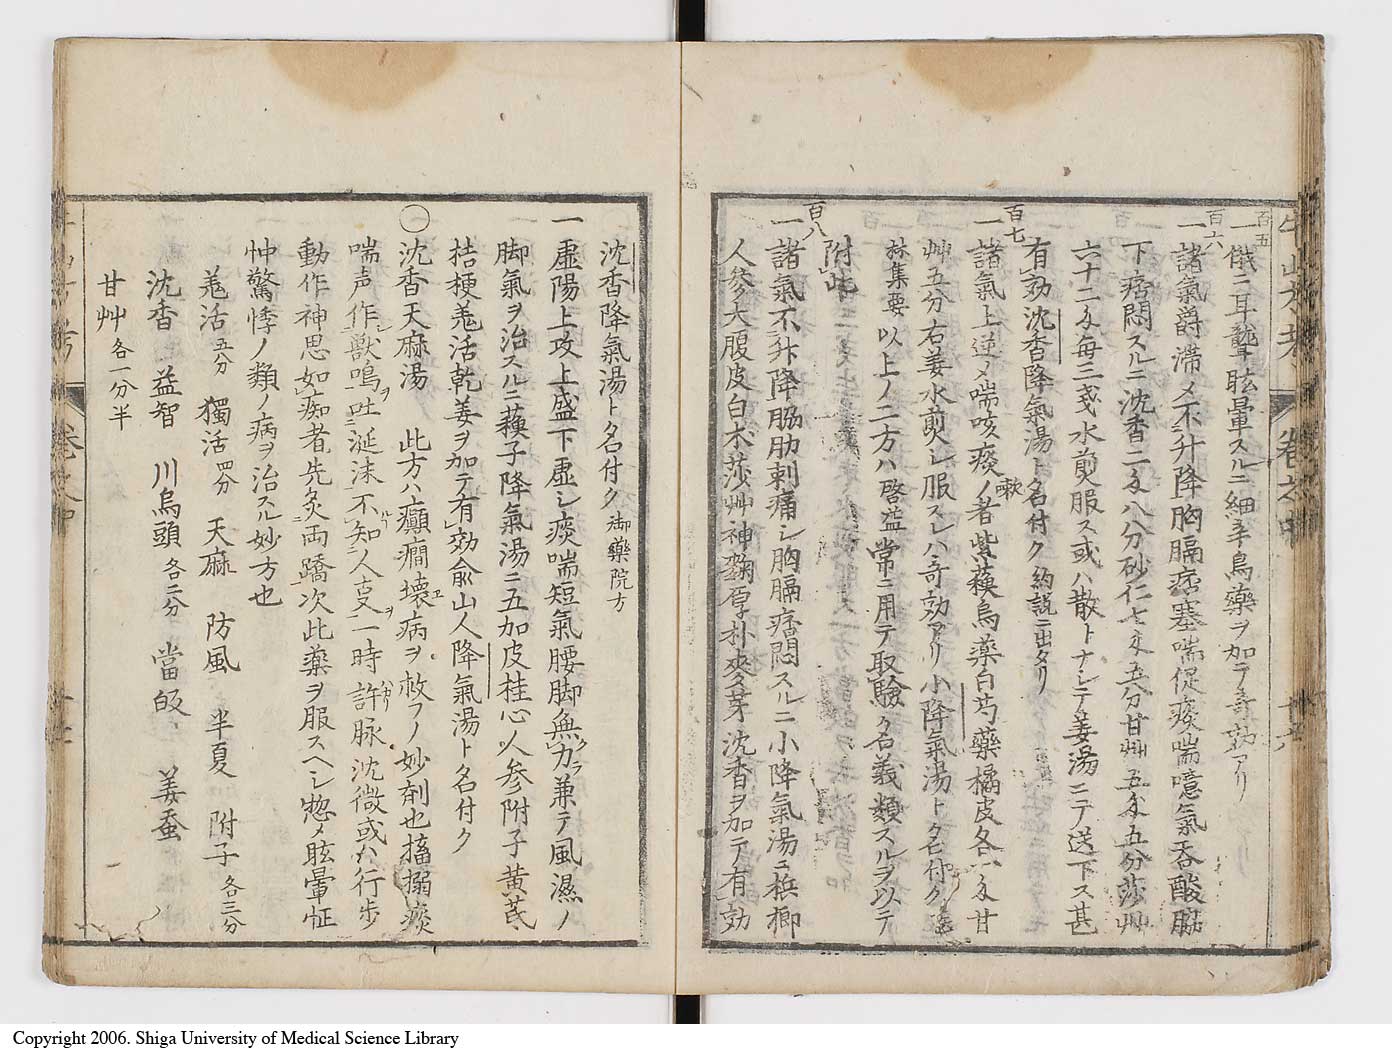 百五
一俄ニ耳聾眩暈スルニ細辛烏藥ヲ加テ奇効アリ
百六
一諸氣欝滯メ不升降胸膈痞塞喘促痰喘噫氣呑酸脇
下痞悶スルニ沈香二匁八分砂仁七匁五分甘艸五匁五分莎艸
六十二匁毎三戔水煎服ス或ハ散トナシテ姜湯ニテ送下ス甚
有効沈香降氣湯ト名付ク 約説ニ出タリ
百七
一諸氣上逆メ喘咳痰嗽ノ者紫蘓烏藥白芍藥橘皮各一匁甘
艸五分右姜水煎シ服スレハ奇効アリ小降氣湯ト名付ク
林集要 以上ノ二方ハ啓益常ニ用テ取驗ク名義類スルヲ以テ
附此
百八
一諸氣不升降脇肋刺痛シ胸膈痞悶スルニ小降氣湯ニ梹榔
人參大腹皮白朮莎艸神麹厚朴麥芽沈香ヲ加テ有効
沈香降氣湯ト名付ク 御藥院方
一虚陽上攻上盛下虚シ痰喘短氣腰脚無力兼テ風濕ノ
脚氣ヲ治スルニ蘓子降氣湯ニ五加皮桂心人参附子黄芪
桔梗羗活乾姜ヲ加テ有効兪山人降氣湯ト名付ク
○沈香天麻湯 此方ハ癲癇壊病ヲ救フノ妙剤也搐搦痰
喘声作獸鳴吐涎沫不知人事一時許脉沈微或ハ行歩
動作神思如痴者先灸両蹻次此藥ヲ服スヘシ惣メ眩暈怔
忡驚悸ノ類ノ病ヲ治スル妙方也
羗活五分 獨活四分 天麻 防風 半夏 附子各三分
沈香 益智 川烏頭各二分 當皈 姜蚕
甘艸各一分半
Copyright 2006. Shiga University of Medical Science Library